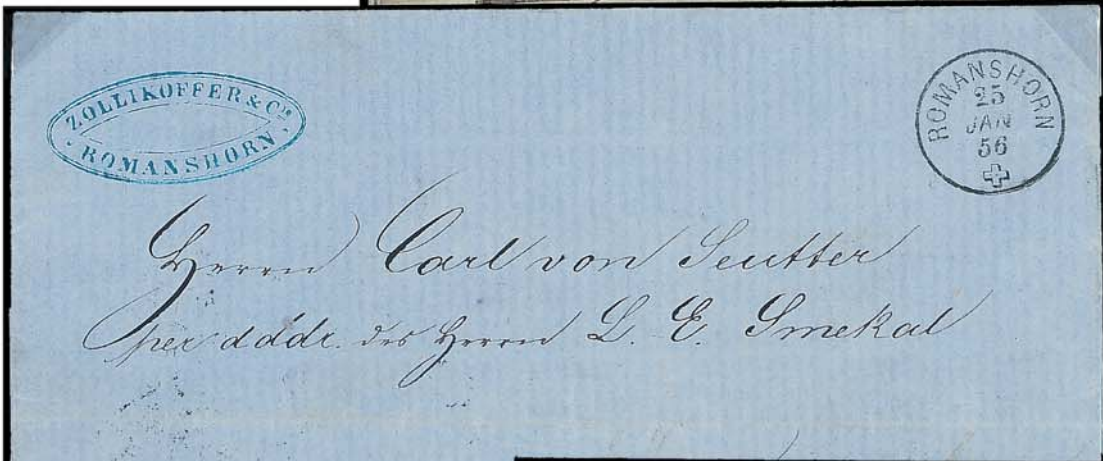 ZOLLIKOFFER & Cie
ROMANSHORN
ROMANSHORN
25
JAN
56
Herrn Carl von Seutter
per addr. des Herrn L. E. Smekal